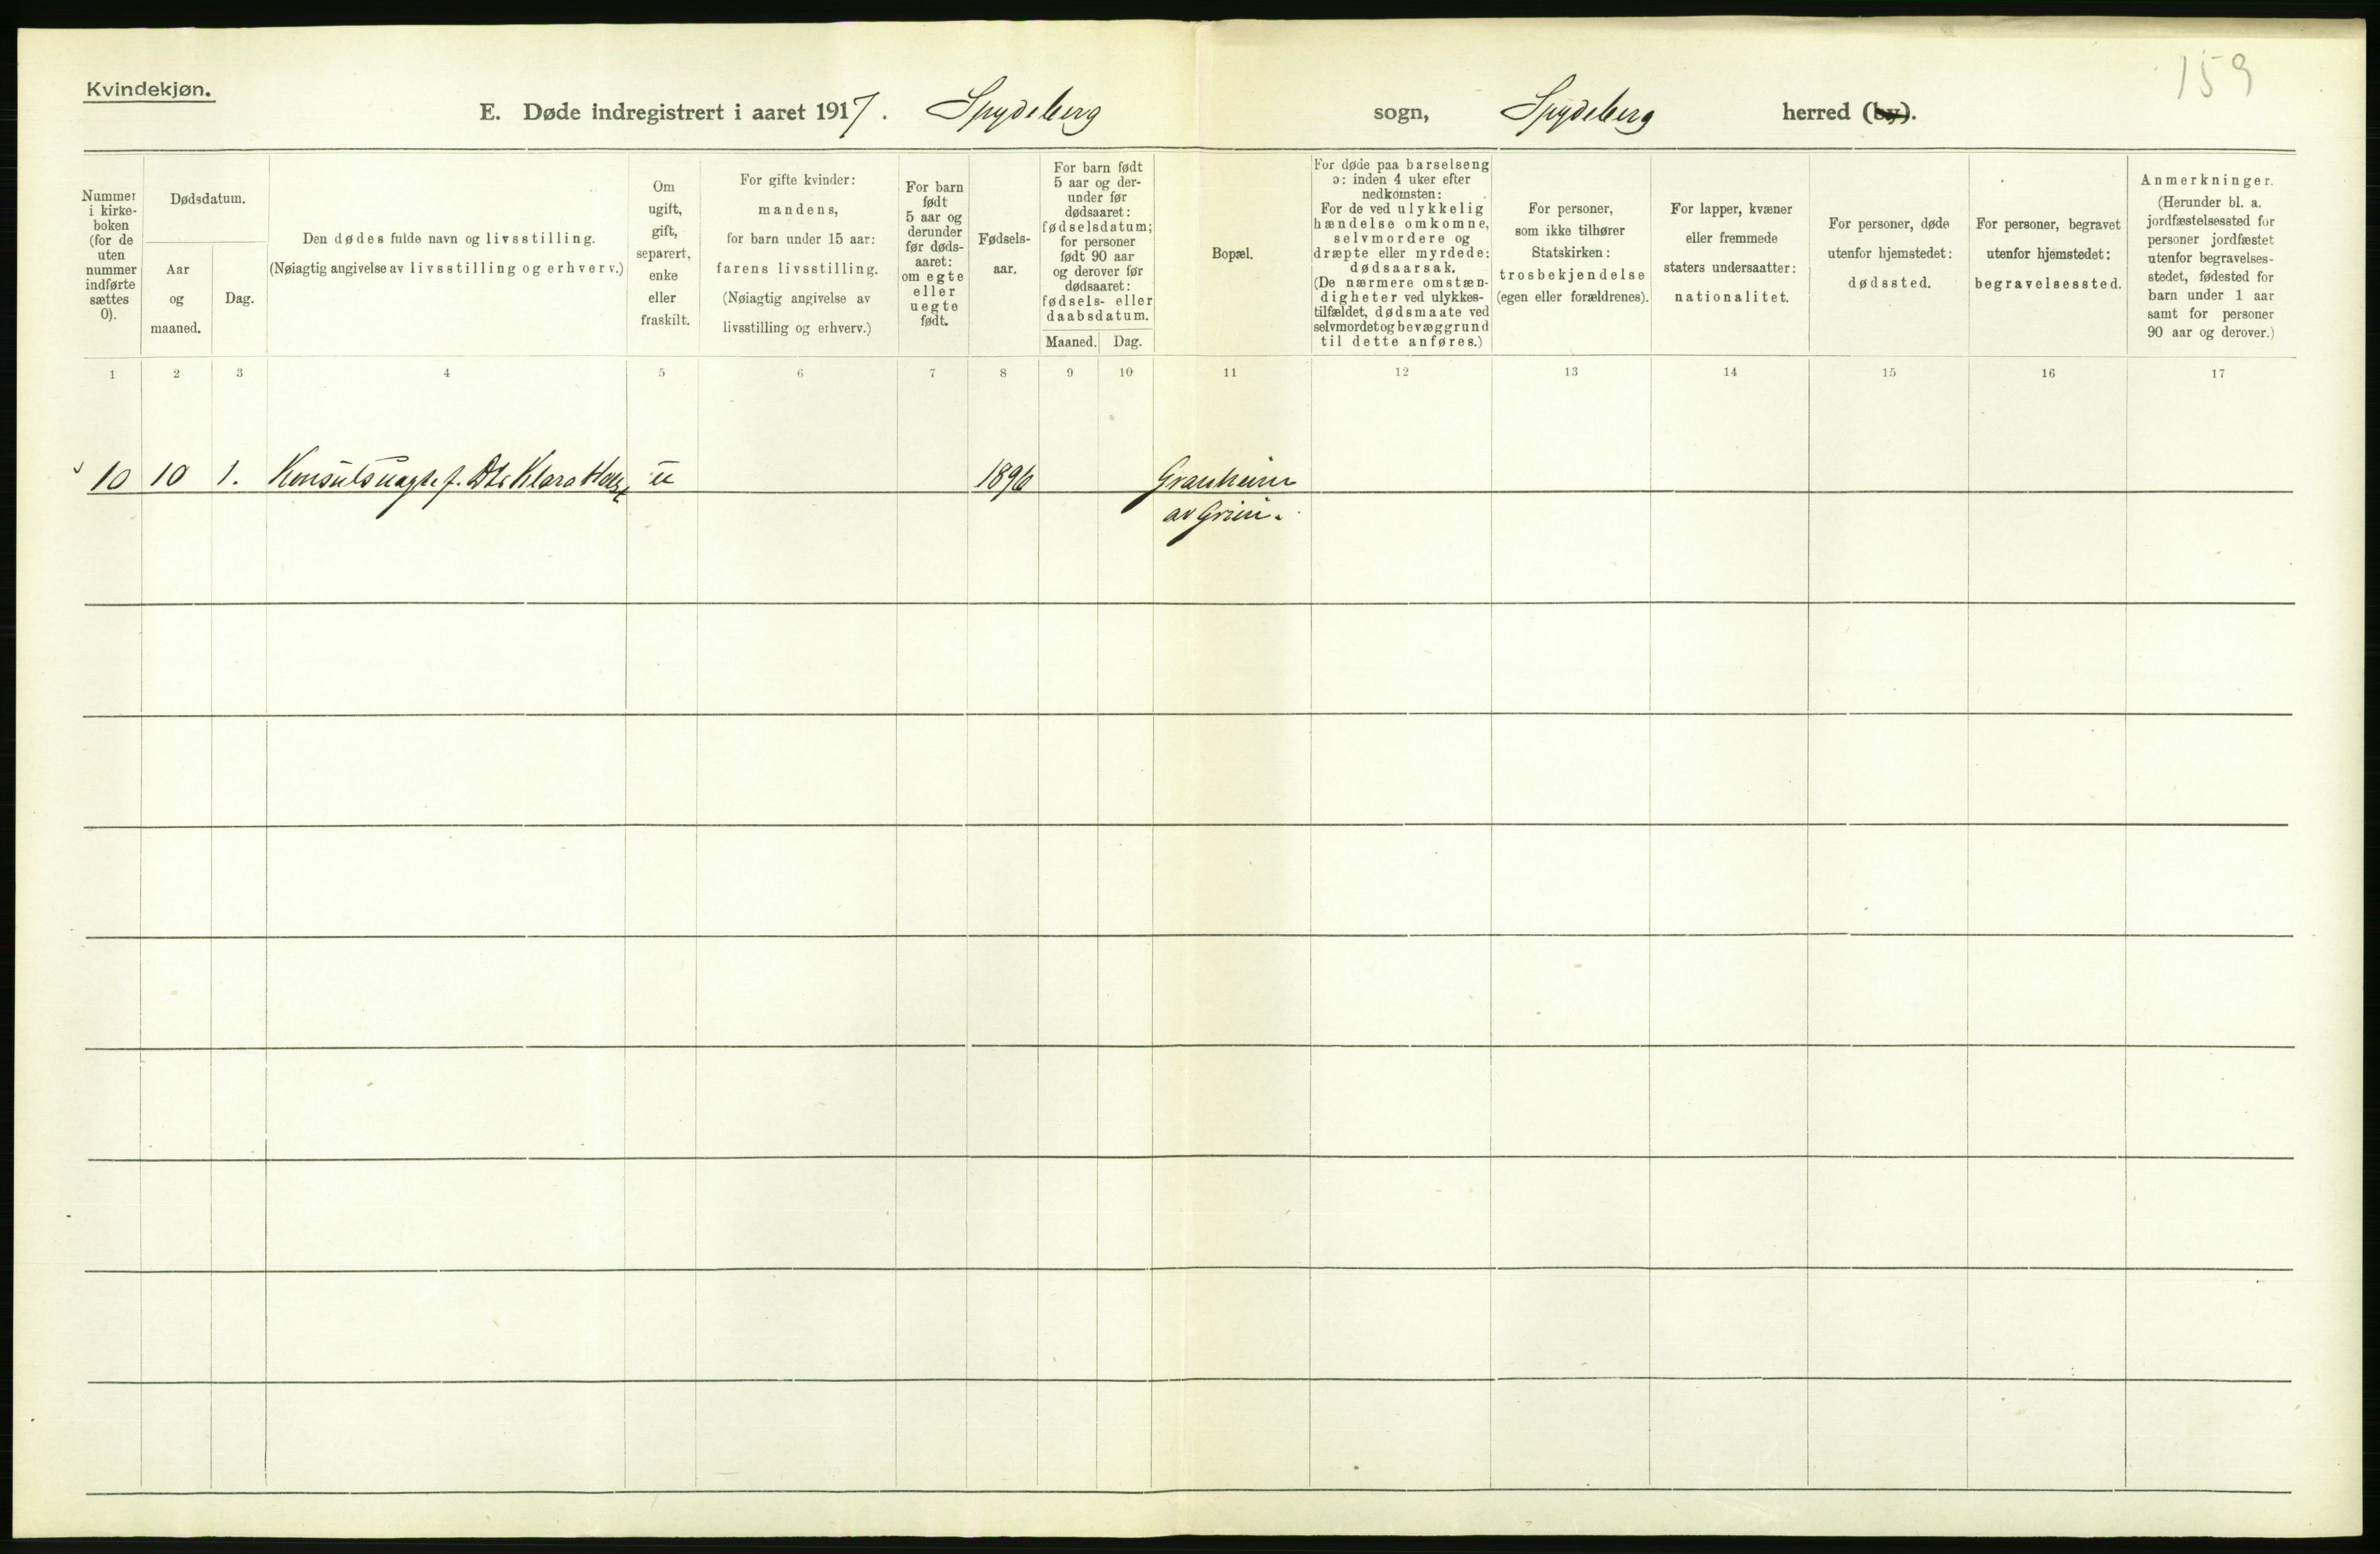 159
Kvindekjøn.
E. Døde indregistrert i aaret 1917. Spydeberg sogn, Spydeberg herred (by).
Nummer
i kirke-
boken
(for de
uten
nummer
indførte
sættes
0).
Dødsdatum.
Aar
og
maaned.
Dag.
Den dødes fulde navn og livsstilling.
(Nøiagtig angivelse av livsstilling og erhverv.)
Om
ugift,
gift,
separert,
enke
eller
fraskilt.
For gifte kvinder:
mandens,
for barn under 15 aar:
farens livsstilling.
(Nøiagtig angivelse av
livsstilling og erhverv.)
For barn
født
5 aar og
derunder
før døds-
aaret:
om egte
eller
uegte
født.
Fødsels-
aar.
For barn født
5 aar og der-
under før
dødsaaret:
fødselsdatum;
for personer
født 90 aar
og derover før
dødsaaret:
fødsels- eller
daabsdatum.
Maaned.
Dag.
Bopæl.
For døde paa barselseng
ɔ: inden 4 uker efter
nedkomsten:
For de ved ulykkelig
hændelse omkomne,
selvmordere og
dræpte eller myrdede:
dødsaarsak.
(De nærmere omstæn-
digheter ved ulykkes-
tilfældet, dødsmaate ved
selvmordet og bevæggrund
til dette anføres.)
For personer,
som ikke tilhører
Statskirken:
trosbekjendelse
(egen eller forældrenes).
For lapper, kvæner
eller fremmede
staters undersaatter:
nationalitet.
For personer, døde
utenfor hjemstedet:
dødssted.
For personer, begravet
utenfor hjemstedet:
begravelsessted.
Anmerkninger.
(Herunder bl. a.
jordfæstelsessted for
personer jordfæstet
utenfor begravelses-
stedet, fødested for
barn under 1 aar
samt for personer
90 aar og derover.)
1 2 3 4 5 6 7 8 9 10 11 12 13 14 15 16 17
10 10 1. Klara u 1896 Granheim
av